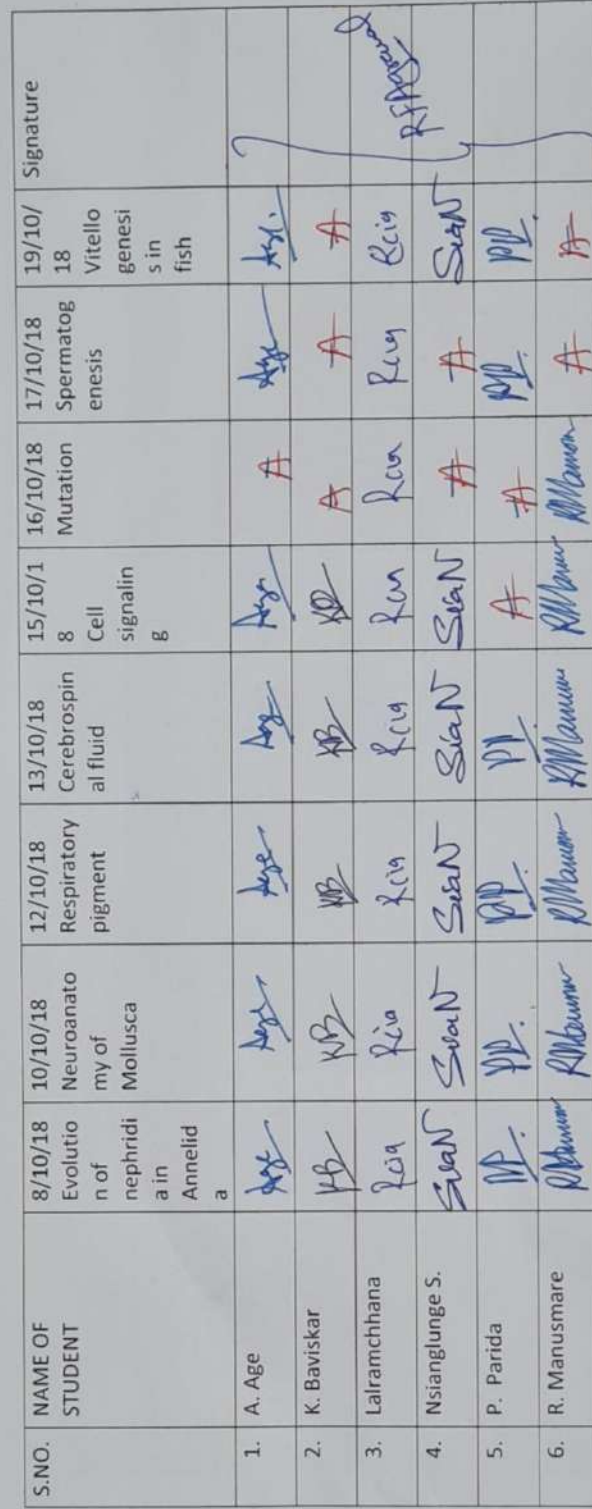 S.NO. NAME OF STUDENT 8/10/18 Evolutio n of nephridi a in Annelid a 10/10/18 Neuroanato my of Mollusca 12/10/18 Respiratory pigment 13/10/18 Cerebrospin al fluid 15/10/1 8 Cell signalin g 16/10/18 Mutation 17/10/18 Spermatog enesis 19/10/ 18 Vitello genesi s in fish Signature
1. A. Age Age Age Age Age Age A Age Age
2. K. Baviskar KB KB KB KB KB A A A
3. Lalramchhana Rcia Rcia Rcia Rcia Rcia Rcia Rcia Rcia
4. Nsianglunge S. SiaN SiaN SiaN SiaN SiaN A A SiaN
5. P. Parida PP. PP. PP. PP. A A PP. PP.
6. R. Manusmare RManusm RManusm RManusm RManusm RManusm RManusm A A